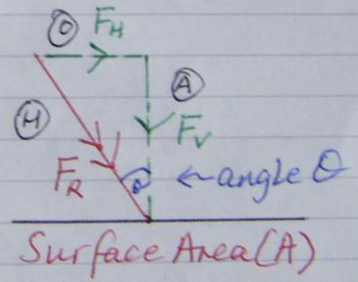 O F_H
A
H F_V
F_R ←angle θ
Surface Area(A)